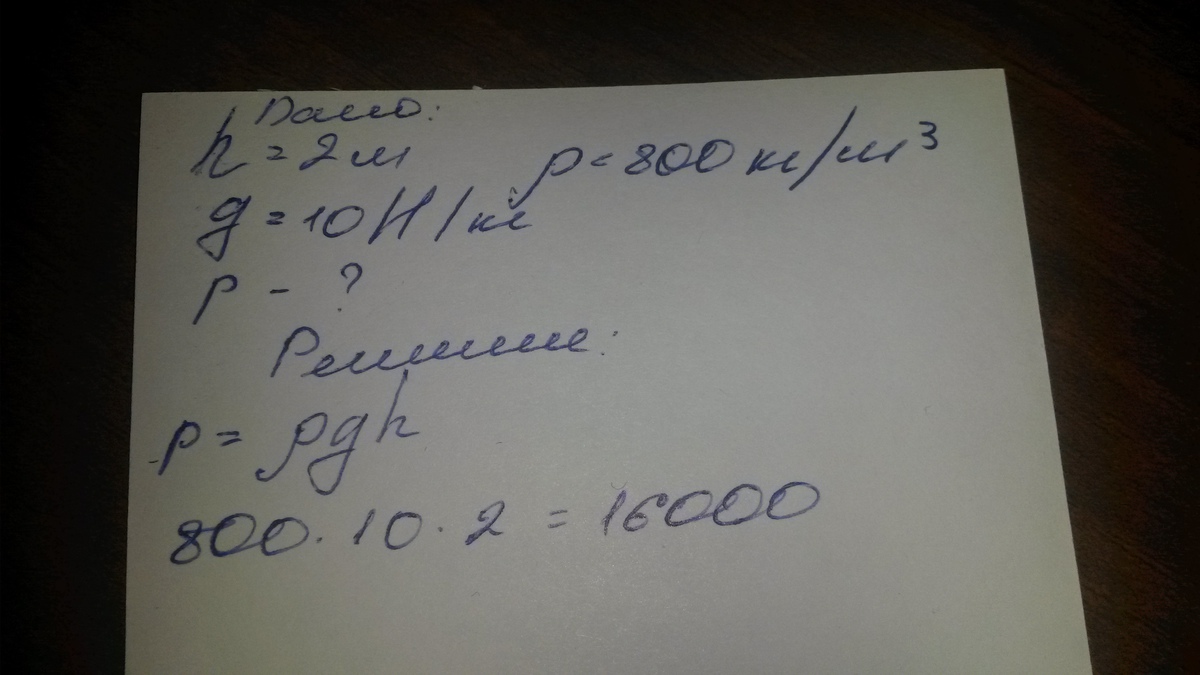 Дано:
h = 2м ρ = 800 кг/м³
g = 10 Н/кг
p - ?
Решение:
p = ρgh
800 · 10 · 2 = 16000